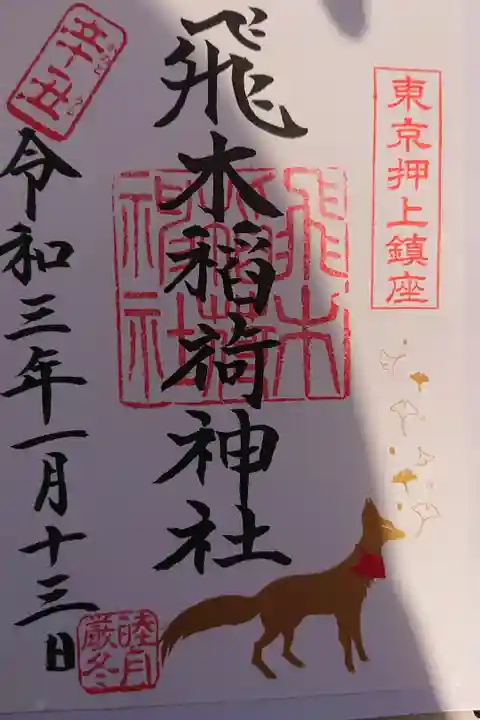 東京押上鎮座
飛木稲荷神社
飛木稲荷神社
辛丑
令和三年一月十三日
睦月
厳冬